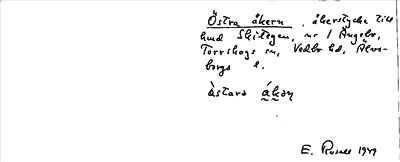 Östra åkern, åkerstycke till
hmd Skitegen, nr 1 Ängebo,
Torrskogs sn, Vedbo hd, Älvs-
borgs l.
àstara ákan
E. Rosell 1949